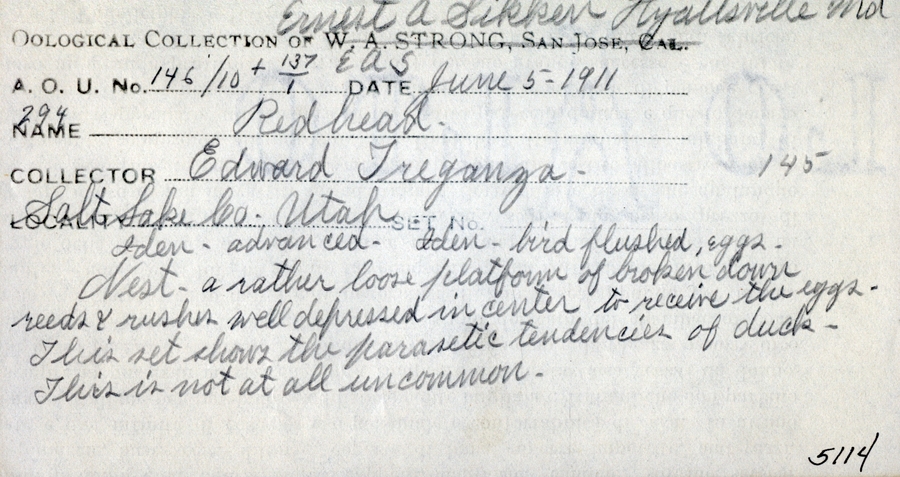 Ernest A Sikken Hyattsville Md
OOLOGICAL COLLECTION OF W. A. STRONG, SAN JOSE, CAL.
A. O. U. No. 146/10 + 137/1 EAS DATE June 5-1911
294
NAME Redhead.
COLLECTOR Edward Treganza - 145
LOCALITY Salt Lake Co. Utah SET No.
Iden - advanced - Iden - bird flushed, eggs.
Nest - a rather loose platform of broken down
reeds & rushes well depressed in center to receive the eggs -
This set shows the parasetic tendencies of duck -
This is not at all uncommon -
5114